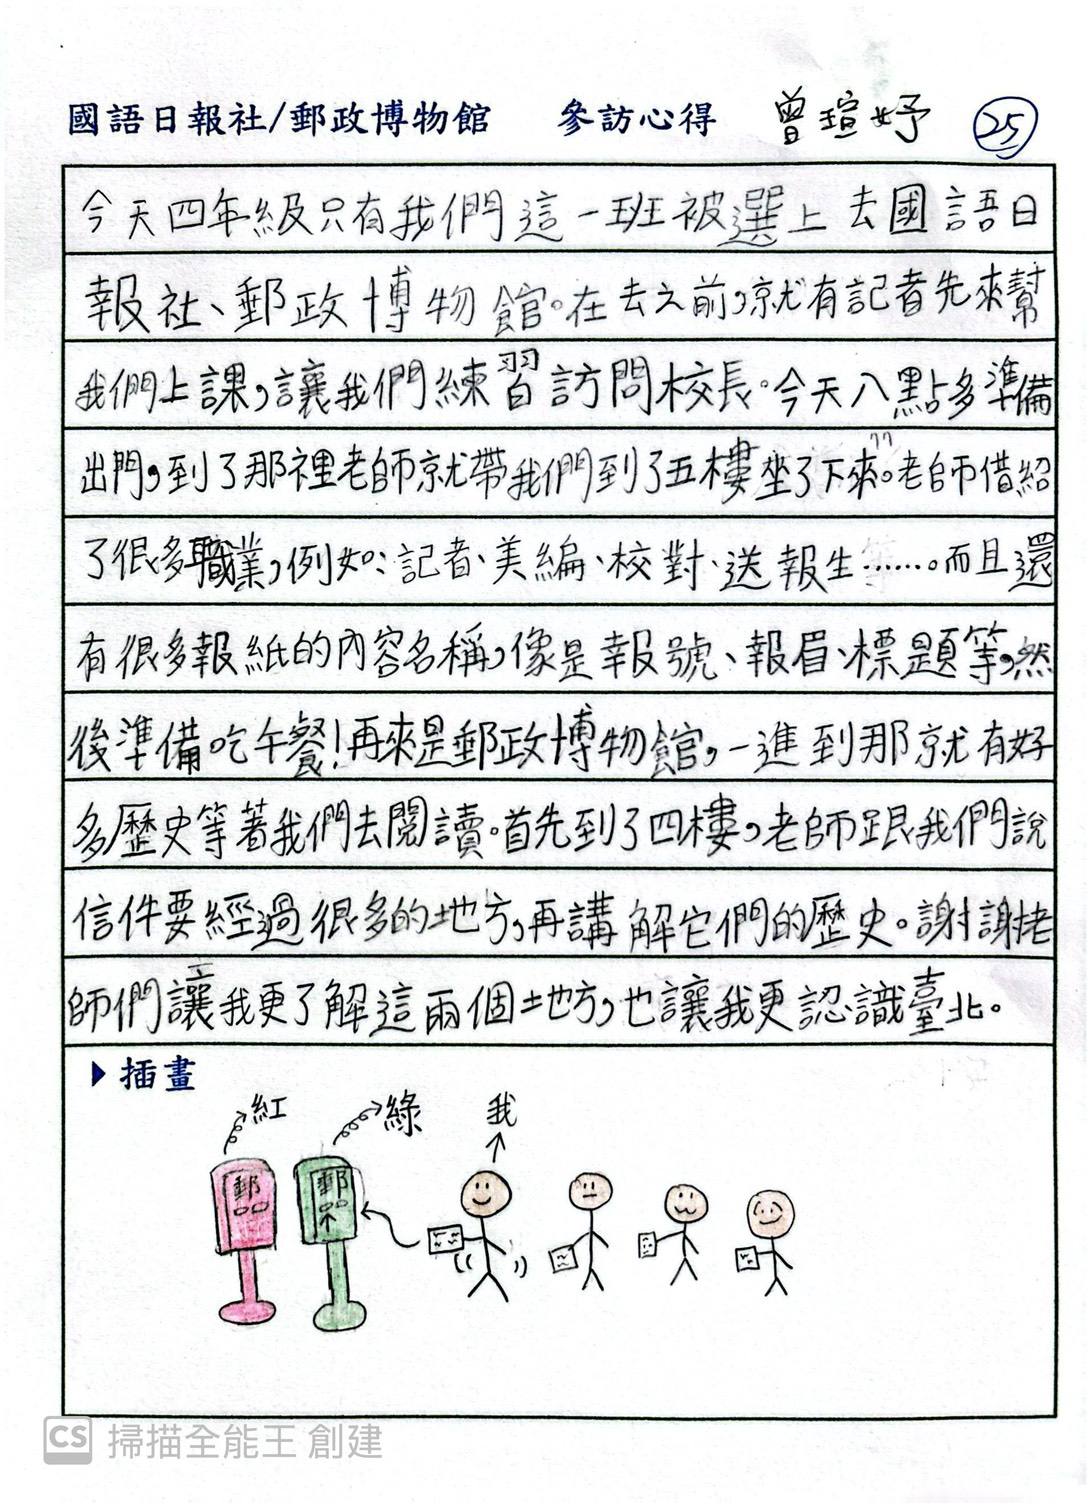 國語日報社/郵政博物館 參訪心得 曾瑄妤 25
今天四年級只有我們這一班被選上去國語日
報社、郵政博物館。在去之前,就有記者先來幫
我們上課,讓我們練習訪問校長。今天八點多準備
出門,到了那裡老師就帶我們到了五樓坐了下來。老師借紹
了很多職業,例如:記者、美編、校對、送報生……。而且還
有很多報紙的內容名稱,像是報號、報眉、標題等,然
後準備吃午餐!再來是郵政博物館,一進到那就有好
多歷史等著我們去閱讀。首先到了四樓,老師跟我們說
信件要經過很多的地方,再講解它們的歷史。謝謝老
師們讓我更了解這兩個地方,也讓我更認識臺北。
插畫
紅 綠 我
郵 郵
CS 掃描全能王 創建